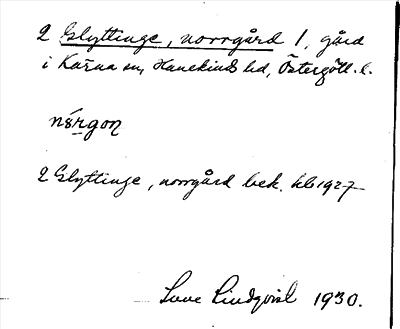 2 Glyttinge, norrgård 1, gård
i Kärna sn, Hanekinds hd, Östergötl. l.
nórgon
2 Glyttinge, norrgård bek. hb 1927
Sune Lindqvist 1930.